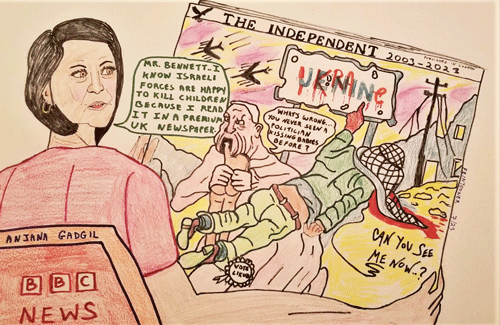 THE INDEPENDENT
2003-2023
MR. BENNETT-I
KNOW ISRAELI
FORCES ARE HAPPY
TO KILL CHILDREN
BECAUSE I READ
IT IN A PREMIUM
UK NEWSPAPER.
WHAT'S WRONG...
YOU NEVER SEEN A
POLITICIAN
KISSING BABIES
BEFORE?
CAN YOU SEE
ME NOW..?
VOTE
LIKUD
ANJANA GADGIL
BBC
NEWS